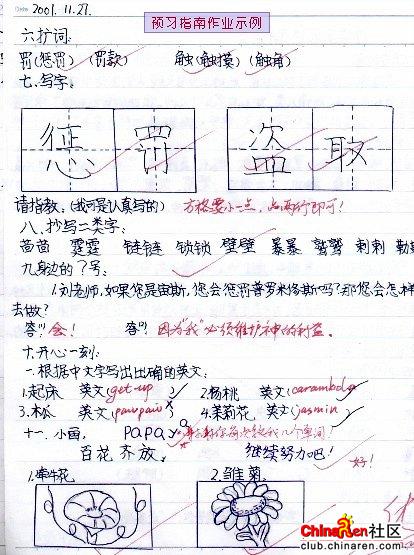 Date 2001.11.27.
预习指南作业示例
六.扩词:
罚(惩罚)(罚款) 触(触摸)(触角)
七.写字:
惩 罚 盗 取
请指教:(我可是认真写的) 方格要小一点,占两行即可!
八.抄写二类字:
茁茁 霆霆 链链 锁锁 壁壁 暴暴 鹫鹫 刺刺
九.身边的?号:
1.刘老师,如果您是宙斯,您会惩罚普罗米修斯吗?那您会怎样
去做?
答:会! 答:因为“我”必须维护神的利益。
十.开心一刻:
一.根据中文字写出正确的英文:
1.起床 英文(get up) 2.杨桃 英文(carambola
3.木瓜 英文(pawpaw) 4.茉莉花 英文(jasmin)
十一.小画, papaya
百花齐放. 继续努力吧! 好!
1.牵牛花 2.雏菊.
ChinaRen社区
club.chinaren.com